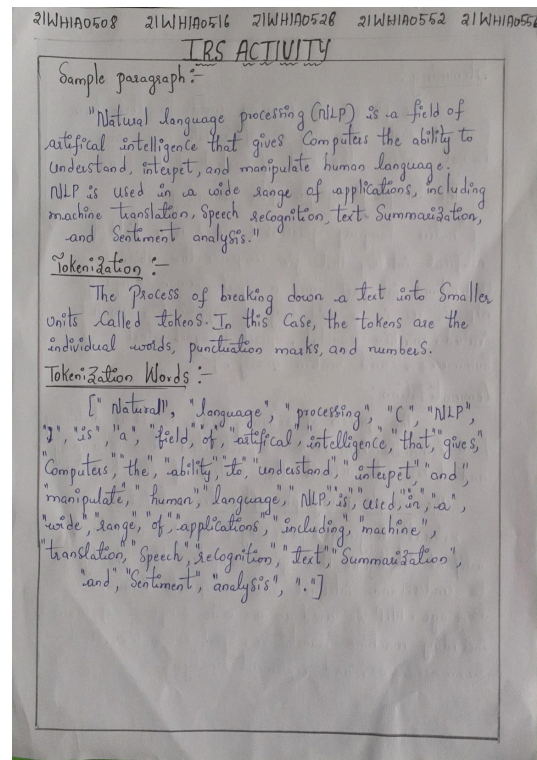 21WH1A0508 21WH1A0516 21WH1A0528 21WH1A0552 21WH1A055
IRS ACTIVITY
Sample paragraph:-
"Natural language processing (NLP) is a field of
artifical intelligence that gives Computers the ability to
understand, interpet, and manipulate human language.
NLP is used in a wide range of applications, including
machine translation, Speech recognition, text Summarization,
and Sentiment analysis."
Tokenization :-
The Process of breaking down a text into Smaller
units Called tokens. In this Case, the tokens are the
individual words, punctuation marks, and numbers.
Tokenization Words :-
[" Natural", "language", "processing", "(", "NLP",
")", "is", "a", "field", "of", "artifical", "intelligence", "that", "gives",
"Computers", "the", "ability", "to", "understand", "interpet", "and",
"manipulate", "human", "language", "NLP", "is", "used", "in", "a",
"wide", "range", "of", "applications", "including", "machine",
"translation", "Speech", "recognition", "text", "Summarization",
"and", "Sentiment", "analysis", "."]